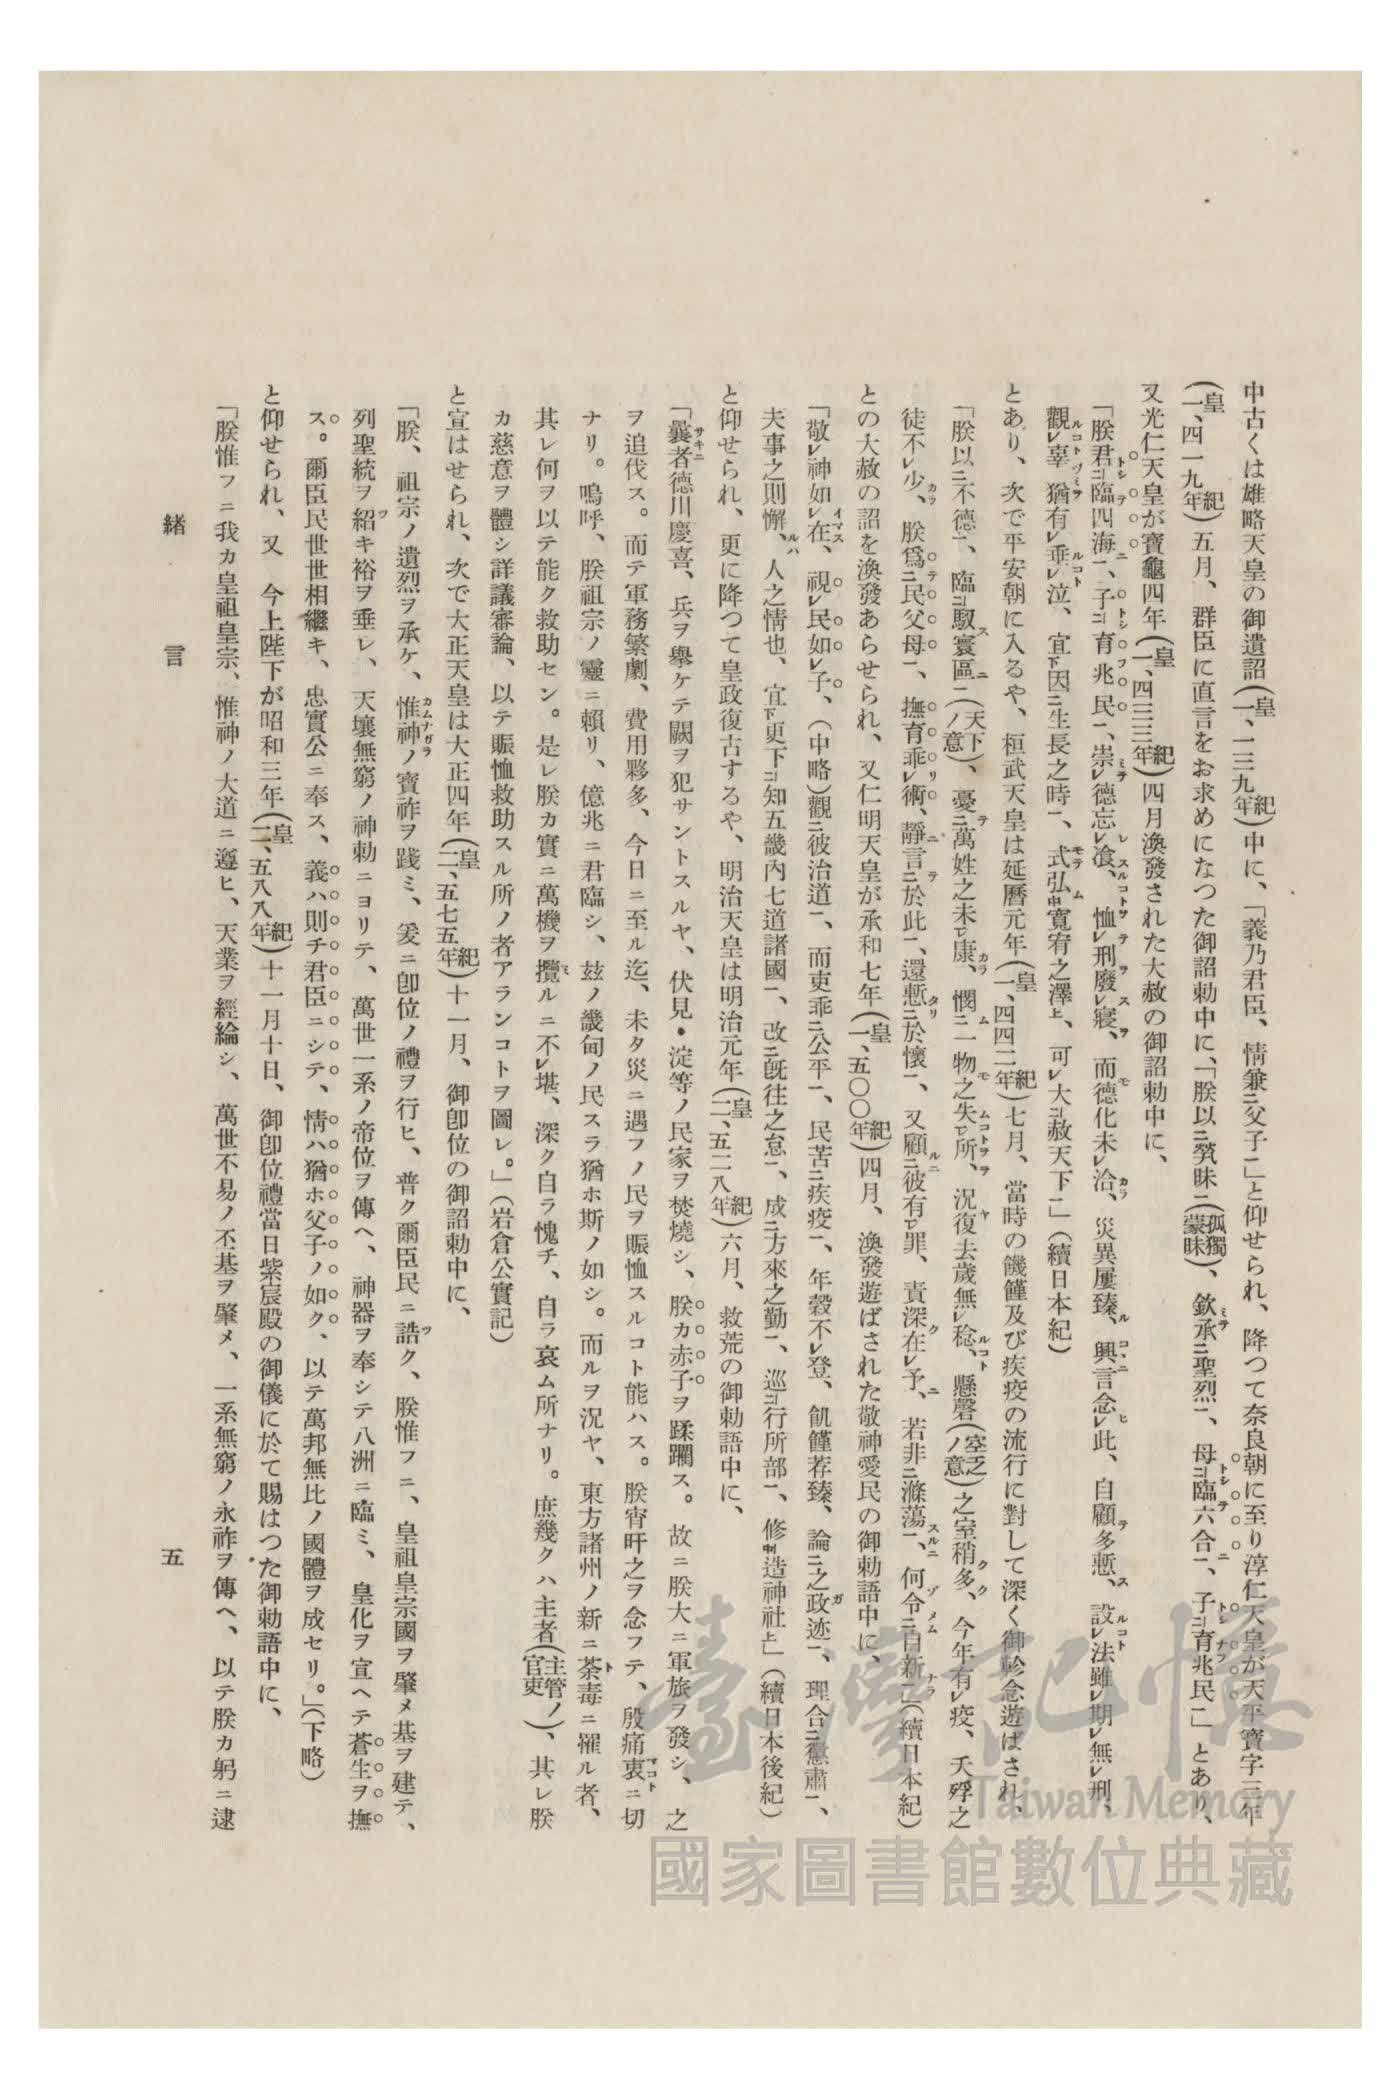 中古くは雄略天皇の御遺詔(皇紀一、一三九年)中に、「義乃君臣、情兼ニ父子一」と仰せられ、降つて奈良朝に至り淳仁天皇が天平寶字三年
(皇紀一、四一九年)五月、群臣に直言をお求めになつた御詔勅中に、「朕以ニ煢昧一(孤獨蒙昧)、欽承ニ聖烈一、母ニ臨六合一、子ニ育兆民一」とあり、
又光仁天皇が寶龜四年(皇紀一、四三三年)四月渙發された大赦の御詔勅中に、
「朕君ニ臨四海一、子ニ育兆民一、崇レ德忘レ飡、恤レ刑廢レ寢、而德化未レ洽、災異屢臻、興言念レ此、自顧多慙、設レ法雖レ期レ無レ刑、
觀レ辜猶有レ垂レ泣、宜下因ニ生長之時一、式弘中寬宥之澤上、可レ大ニ赦天下一」(續日本紀)
とあり、次で平安朝に入るや、桓武天皇は延曆元年(皇紀一、四四二年)七月、當時の饑饉及び疾疫の流行に對して深く御軫念遊ばされ、
「朕以ニ不德一、臨ニ馭寰區一(天下ノ意)、憂ニ萬姓之未レ康、憫ニ一物之失レ所、況復去歲無レ稔、懸磬(空乏ノ意)之室稍多、今年有レ疫、夭殍之
徒不レ少、朕爲ニ民父母一、撫育乖レ術、靜言ニ於此一、還慙ニ於懷一、又顧ニ彼有レ罪、責深在レ予、若非ニ滌蕩一、何令ニ自新一」(續日本紀)
との大赦の詔を渙發あらせられ、又仁明天皇が承和七年(皇紀一、五〇〇年)四月、渙發遊ばされた敬神愛民の御勅語中に、
「敬レ神如レ在、視レ民如レ子、(中略)觀ニ彼治道一、而吏乖ニ公平一、民苦ニ疾疫一、年穀不レ登、飢饉荐臻、論ニ之政迹一、理合ニ懲肅一、
夫事之則懈、人之情也、宜下更下ニ知五畿內七道諸國一、改ニ既往之怠一、成ニ方來之勤一、巡ニ行所部一、修中造神社上」(續日本後紀)
と仰せられ、更に降つて皇政復古するや、明治天皇は明治元年(皇紀二、五二八年)六月、救荒の御勅語中に、
「曩者德川慶喜、兵ヲ擧ケテ闕ヲ犯サントスルヤ、伏見・淀等ノ民家ヲ焚燒シ、朕カ赤子ヲ蹂躙ス。故ニ朕大ニ軍旅ヲ發シ、之
ヲ追伐ス。而テ軍務繁劇、費用夥多、今日ニ至ル迄、未タ災ニ遇フノ民ヲ賑恤スルコト能ハス。朕宵旰之ヲ念フテ、殷痛衷ニ切
ナリ。嗚呼、朕祖宗ノ靈ニ賴リ、億兆ニ君臨シ、玆ノ畿甸ノ民スラ猶ホ斯ノ如シ。而ルヲ況ヤ、東方諸州ノ新ニ荼毒ニ罹ル者、
其レ何ヲ以テ能ク救助セン。是レ朕カ實ニ萬機ヲ攬ルニ不レ堪、深ク自ラ愧チ、自ラ哀ム所ナリ。庶幾クハ主者(主管ノ官吏)、其レ朕
カ慈意ヲ體シ詳議審論、以テ賑恤救助スル所ノ者アランコトヲ圖レ。」(岩倉公實記)
と宣はせられ、次で大正天皇は大正四年(皇紀二、五七五年)十一月、御卽位の御詔勅中に、
「朕、祖宗ノ遺烈ヲ承ケ、惟神ノ寶祚ヲ踐ミ、爰ニ卽位ノ禮ヲ行ヒ、普ク爾臣民ニ誥ク、朕惟フニ、皇祖皇宗國ヲ肇メ基ヲ建テ、
列聖統ヲ紹キ裕ヲ垂レ、天壤無窮ノ神勅ニヨリテ、萬世一系ノ帝位ヲ傳ヘ、神器ヲ奉シテ八洲ニ臨ミ、皇化ヲ宣ヘテ蒼生ヲ撫
ス。爾臣民世世相繼キ、忠實公ニ奉ス、義ハ則チ君臣ニシテ、情ハ猶ホ父子ノ如ク、以テ萬邦無比ノ國體ヲ成セリ。」(下略)
と仰せられ、又 今上陛下が昭和三年(皇紀二、五八八年)十一月十日、御卽位禮當日紫宸殿の御儀に於て賜はつた御勅語中に、
「朕惟フニ我カ皇祖皇宗、惟神ノ大道ニ遵ヒ、天業ヲ經綸シ、萬世不易ノ丕基ヲ肇メ、一系無窮ノ永祚ヲ傳ヘ、以テ朕カ躬ニ逮
緒言 五
臺灣記憶
Taiwan Memory
國家圖書館數位典藏